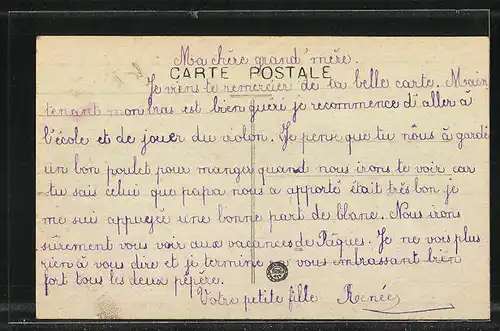 Ma chère grand'mère.
CARTE POSTALE
Je viens te remercier de ta belle carte. Main
tenant mon bras est bien guéri je recommence d'aller à
l'école et de jouer du violon. Je pense que tu nous à gardé
un bon poulet pour manger quand nous irons te voir car
tu sais celui que papa nous a apporté était très bon je
me suis appuyée une bonne part de blanc. Nous irons
sûrement vous voir aux vacances de Pâques. Je ne vois plus
rien à vous dire et je termine en vous embrassant bien
fort tous les deux pépère.
Votre petite fille Renée